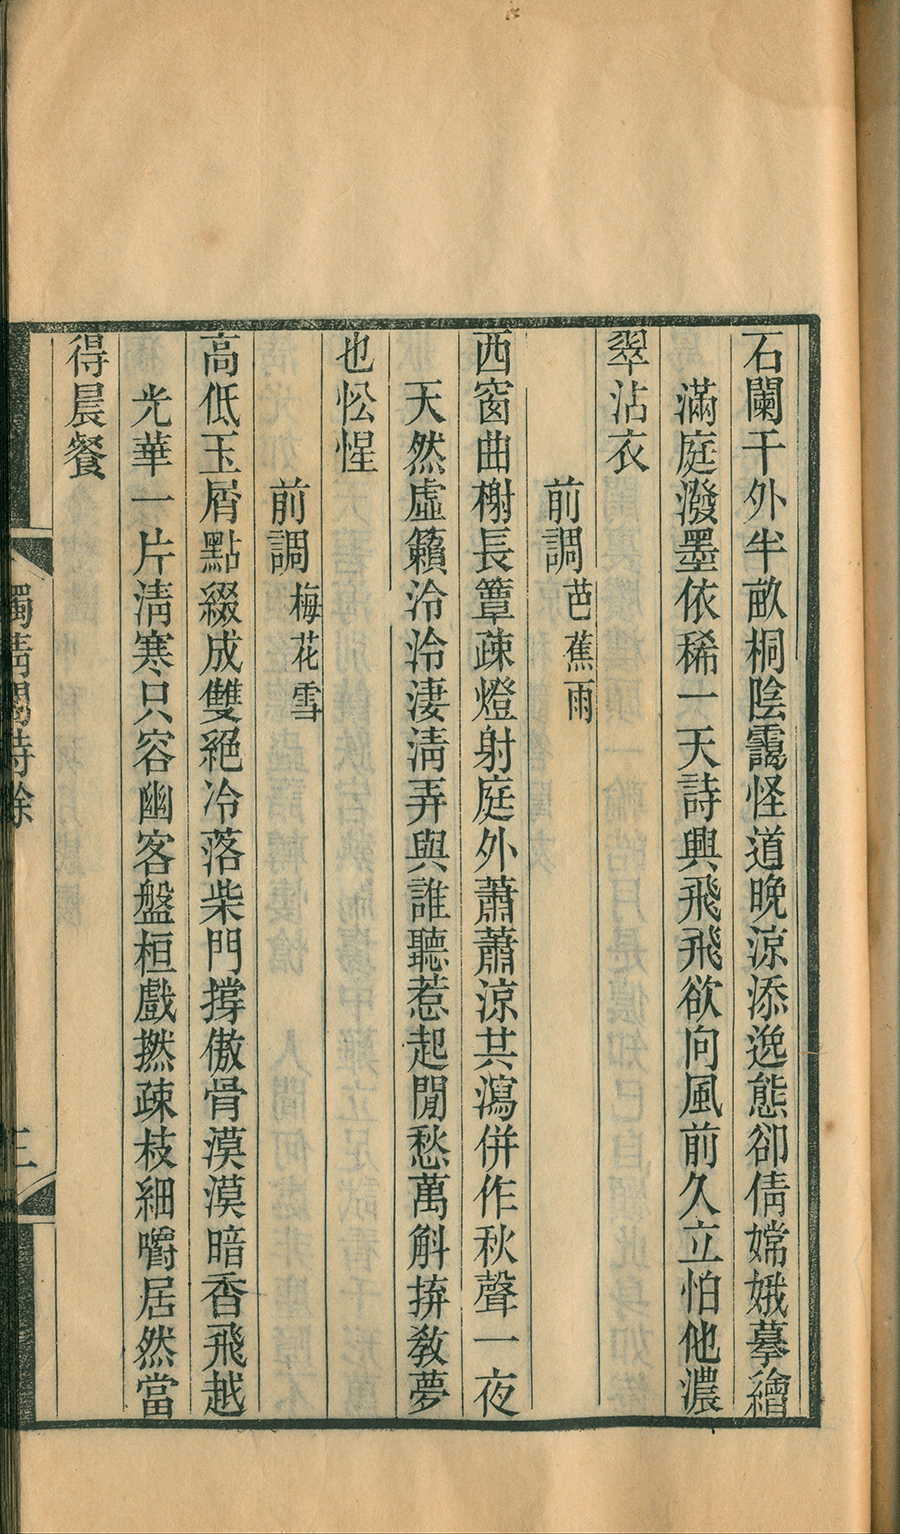 石闌干外半畝桐陰靄怪道晚涼添逸態卻倩嫦娥摹繪
滿庭潑墨依稀一天詩興飛飛欲向風前久立怕他濃
翠沾衣
前調芭蕉雨
西窗曲榭長簟疎燈射庭外蕭蕭涼共瀉併作秋聲一夜
天然虛籟泠泠淒淸弄與誰聽惹起閒愁萬斛拚教夢
也忪惺
前調梅花雪
高低玉屑點綴成雙絕冷落柴門撐傲骨漠漠暗香飛越
光華一片淸寒只容幽客盤桓戲撚疎枝細嚼居然當
得晨餐
獨淸閣詩餘
三